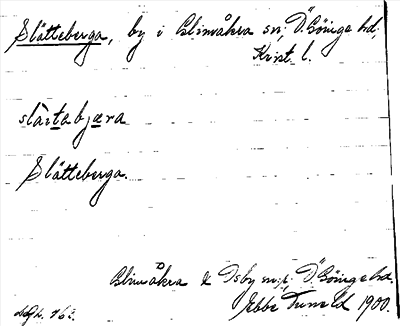 Slätteberga, by i Glimåkra sn; Ö. Göinge hd,
Krist. l.
slätabjæra
Slätteberga.
Glimåkra & Osby snr; Ö. Göinge hd.
Ebbe Tuneld 1900.